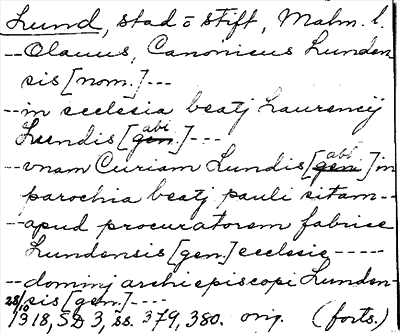 Lund, stad o stift, Malm. l.
--Olauus, Canonicus Lunden
sis [nom.]---
--in ecclesia beatj Laurencij
Lundis [gen. abl.]---
--vnam Curiam Lundis [gen. abl.] in
parochia beatj pauli sitam--
--apud procuratorem fabrice
Lundensis [gen.] ecclesie----
--dominj archiepiscopi Lunden-
sis [gen.]----
28/10 1318, SD 3, ss. 379, 380. orig. (forts.)